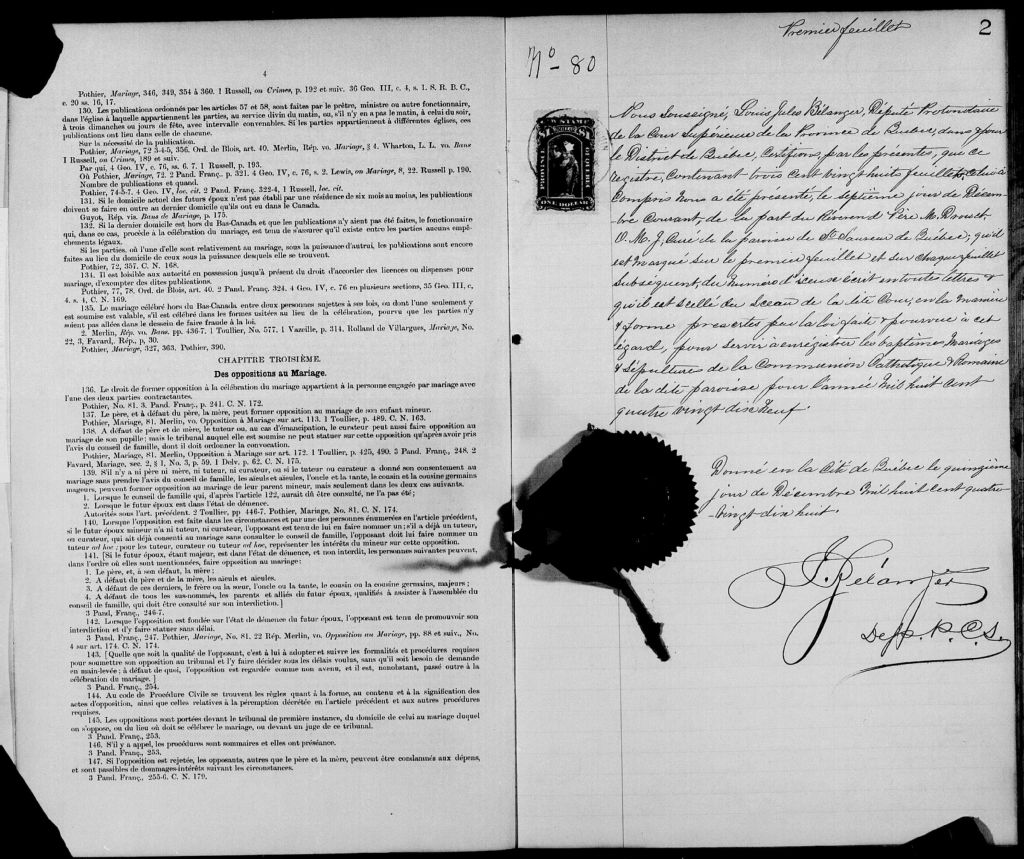 4
Pothier, Mariage, 346, 349, 354 à 360. 1 Russell, on Crimes, p. 192 et suiv. 36 Geo. III, c. 4, s. 1. S. R. B. C.,
c. 20 ss. 16, 17.
130. Les publications ordonnés par les articles 57 et 58, sont faites par le prêtre, ministre ou autre fonctionnaire,
dans l'église à laquelle appartiennent les parties, au service divin du matin, ou, s'il n'y en a pas le matin, à celui du soir,
à trois dimanches ou jours de fête, avec intervalle convenables. Si les parties appartiennent à différentes églises, ces
publications ont lieu dans celle de chacune.
Sur la nécessité de la publication.
Pothier, Mariage, 72 3-4-5, 356. Ord. de Blois, art. 40. Merlin, Rép. vo. Mariage, § 4. Wharton, L. L. vo. Bans
1 Russell, on Crimes, 189 et suiv.
Par qui, 4 Geo. IV, c. 76, ss. 6. 7. 1 Russell, p. 193.
Où Pothier, Mariage, 72. 2 Pand. Franç. p. 321. 4 Geo. IV, c. 76, s. 2. Lewis, on Mariage, 8, 22. Russell p. 190.
Nombre de publications et quand.
Pothier, 74-5-7, 4 Geo. IV, loc. cit. 2 Pand. Franç. 322-4, 1 Russell, loc. cit.
131. Si le domicile actuel des futurs époux n'est pas établi par une résidence de six mois au moins, les publications
doivent se faire en outre au dernier domicile qu'ils ont eu dans le Canada.
Guyot, Rép. vis. Bans de Mariage, p. 175.
132. Si la dernier domicile est hors du Bas-Canada et que les publications n'y aient pas été faites, le fonctionnaire
qui, dans ce cas, procède à la célébration du mariage, est tenu de s'assurer qu'il existe entre les parties aucuns empê-
chements légaux.
Si les parties, où l'une d'elle sont relativement au mariage, sous la puissance d'autrui, les publications sont encore
faites au lieu du domicile de ceux sous la puissance desquels elle se trouvent.
Pothier, 72, 357. C. N. 168.
134. Il est loisible aux autorité en possession jusqu'à présent du droit d'accorder des licences ou dispenses pour
mariage, d'exempter des dites publications.
Pothier, 77, 78. Ord. de Blois, art. 40. 2 Pand. Franç. 324. 4 Geo. IV, c. 76 en plusieurs sections, 35 Geo. III, c,
4. s. 4, C. N. 169.
135. Le mariage célébré hors du Bas-Canada entre deux personnes sujettes à ses lois, ou dont l'une seulement y
est soumise est valable, s'il est célébré dans les formes usitées au lieu de la célébration, pourvu que les parties n'y
soient pas allées dans le dessein de faire fraude à la loi.
2. Merlin, Rép. vo. Bans. pp. 436-7. 1 Toullier, No. 577. 1 Vazeille, p. 314. Rolland de Villargues, Mariage, No.
22, 3, Favard,. Rép., p, 30.
Pothier, Mariage, 327, 363. Pothier, 390.
CHAPITRE TROISIÈME.
Des oppositions au Mariage.
136. Le droit de former opposition à la célébration du mariage appartient à la personne engagée par mariage avec
l'une des deux parties contractantes.
Pothier, No. 81. 3. Pand. Franç., p. 241. C. N. 172.
137. Le père, et à défaut du père, la mère, peut former opposition au mariage de son enfant mineur.
Pothier, Mariage, 81. Merlin, vo. Opposition à Mariage sur art. 113. 1 Toullier, p. 489. C. N. 163.
138. A défaut de père et de mère, le tuteur ou, au cas d'émancipation, le curateur peut aussi faire opposition au
mariage de son pupille; mais le tribunal auquel elle est soumise ne peut statuer sur cette opposition qu'après avoir pris
l'avis du conseil de famille, dont il doit ordonner la convocation.
Pothier, Mariage, 81. Merlin, Opposition à Mariage sur art. 172. 1 Toullier, p. 425, 490. 3 Pand. Franç., 248. 2
Favard, Mariage, sec. 2, § 1, No. 3, p. 59. 1 Delv. p. 62. C. N. 175.
139. S'il n'y a ni père ni mère, ni tuteur, ni curateur, ou si le tuteur ou curateur a donné son consentement au
mariage sans prendre l'avis du conseil de famille, les aïeuls et aïeules, l'oncle et la tante, le cousin et la cousine germains
majeurs, peuvent former opposition au mariage de leur parent mineur, mais seulement dans les deux cas suivants.
1. Lorsque le conseil de famille qui, d'après l'article 122, aurait dû être consulté, ne l'a pas été;
2. Lorsque le futur époux est dans l'état de démence.
Autorités sous l'art. précédent. 2 Toullier, pp 446-7. Pothier, Mariage, No. 81. C. N. 174.
140. Lorsque l'opposition est faite dans les circonstances et par une des personnes énumerées en l'article précédent,
si le futur époux mineur n'a ni tuteur, ni curateur, l'opposant est tenu de lui en faire nommer un; s'il a déjà un tuteur,
ou curateur, qui ait déjà consenti au mariage sans consulter le conseil de famille, l'opposant doit lui faire nommer un
tuteur ad hoc; pour les tuteur, curateur ou tuteur ad hoc, représenter les intérêts du mineur sur cette opposition.
141. [Si le futur époux, étant majeur, est dans l'état de démence, et non interdit, les personnes suivantes peuvent,
dans l'ordre où elles sont mentionnées, faire opposition au mariage:
1. Le père, et, à son défaut, la mère;
2. A défaut du père et de la mère, les aïeuls et aïeules.
3. A défaut de ces derniers, le frère ou la sœur, l'oncle ou la tante, le cousin ou la cousine germains, majeurs;
4. A défaut de tous les sus-nommés, les parents et alliés du futur époux, qualifiés à assister à l'assemblée du
conseil de famille, qui doit être consulté sur son interdiction.]
3 Pand, Franç., 246-7.
142. Lorsque l'opposition est fondée sur l'état de démence du futur époux, l'opposant est tenu de promouvoir son
interdiction et d'y faire statuer sans délai.
3 Pand. Franç., 247. Pothier, Mariage, No. 81. 22 Rép. Merlin, vo. Opposition au Mariage, pp. 88 et suiv., No.
4 sur art. 174. C. N. 174.
143. [Quelle que soit la qualité de l'opposant, c'est à lui à adopter et suivre les formalités et procédures requises
pour soumettre son opposition au tribunal et l'y faire décider sous les délais voulus, sans qu'il soit besoin de demande
en main-levée; à défaut de quoi, l'opposition est regardée comme non avenu, et il est, nonobstant, passé outre à la
célébration du mariage.]
3 Pand. Franç., 254.
144. Au code de Procédure Civile se trouvent les règles quant à la forme, au contenu et à la signification des
actes d'opposition, ainsi que celles relatives à la péremption décrétée en l'article précédent et aux autres procédures
requises.
145. Les oppositions sont portées devant le tribunal de première instance, du domicile de celui au mariage duquel
on s'oppose, ou du lieu où doit se célébrer le mariage, ou devant un juge de ce tribunal.
3 Pand. Franç., 253.
146. S'il y a appel, les procédures sont sommaires et elles ont préséance.
3 Pand. Franç., 253.
147. Si l'opposition est rejetée, les opposants, autres que le père et la mère, peuvent être condamnés aux dépens,
et sont passibles de dommages-intérêts suivant les circonstances.
3 Pand. Franç., 255-6. C. N. 179.
Premier feuillet
2
No - 80
LAW STAMP
$1 $1
PROVINCE OF QUEBEC
ONE DOLLAR
Nous soussigné, Louis Jules Bélanger, Député Protonotaire
de la Cour Supérieure de la Province de Québec, dans & pour
le District de Québec, Certifions, par les présentes, que ce
registre, contenant trois cent vingt huit feuillets, celui-ci
compris nous a été présenté, le septième jour de Décem
bre Courant, de la part du Révérend Père M. Drouet
O. M. I, Curé de la paroisse de St Sauveur de Québec; qu'il
est marqué sur le premier feuillet et sur chaque feuillet
subséquent, du numéro d'iceux écrit en toute lettres &
qu'il est scellé du sceau de la dite Cour, en la manière
& forme prescrites par la loi faite & pourvue à cet
égard, pour servir à enregistrer les baptêmes, Mariages
& sépultures de la Communion Catholique & Romaine
de la dite paroisse pour l'année mil huit cent
quatre vingt dix neuf.
Donné en la Cité de Québec le quinzième
jour de Décembre mil huit cent quatre
-vingt dix huit.
J. Bélanger
Dep. P. C. S.